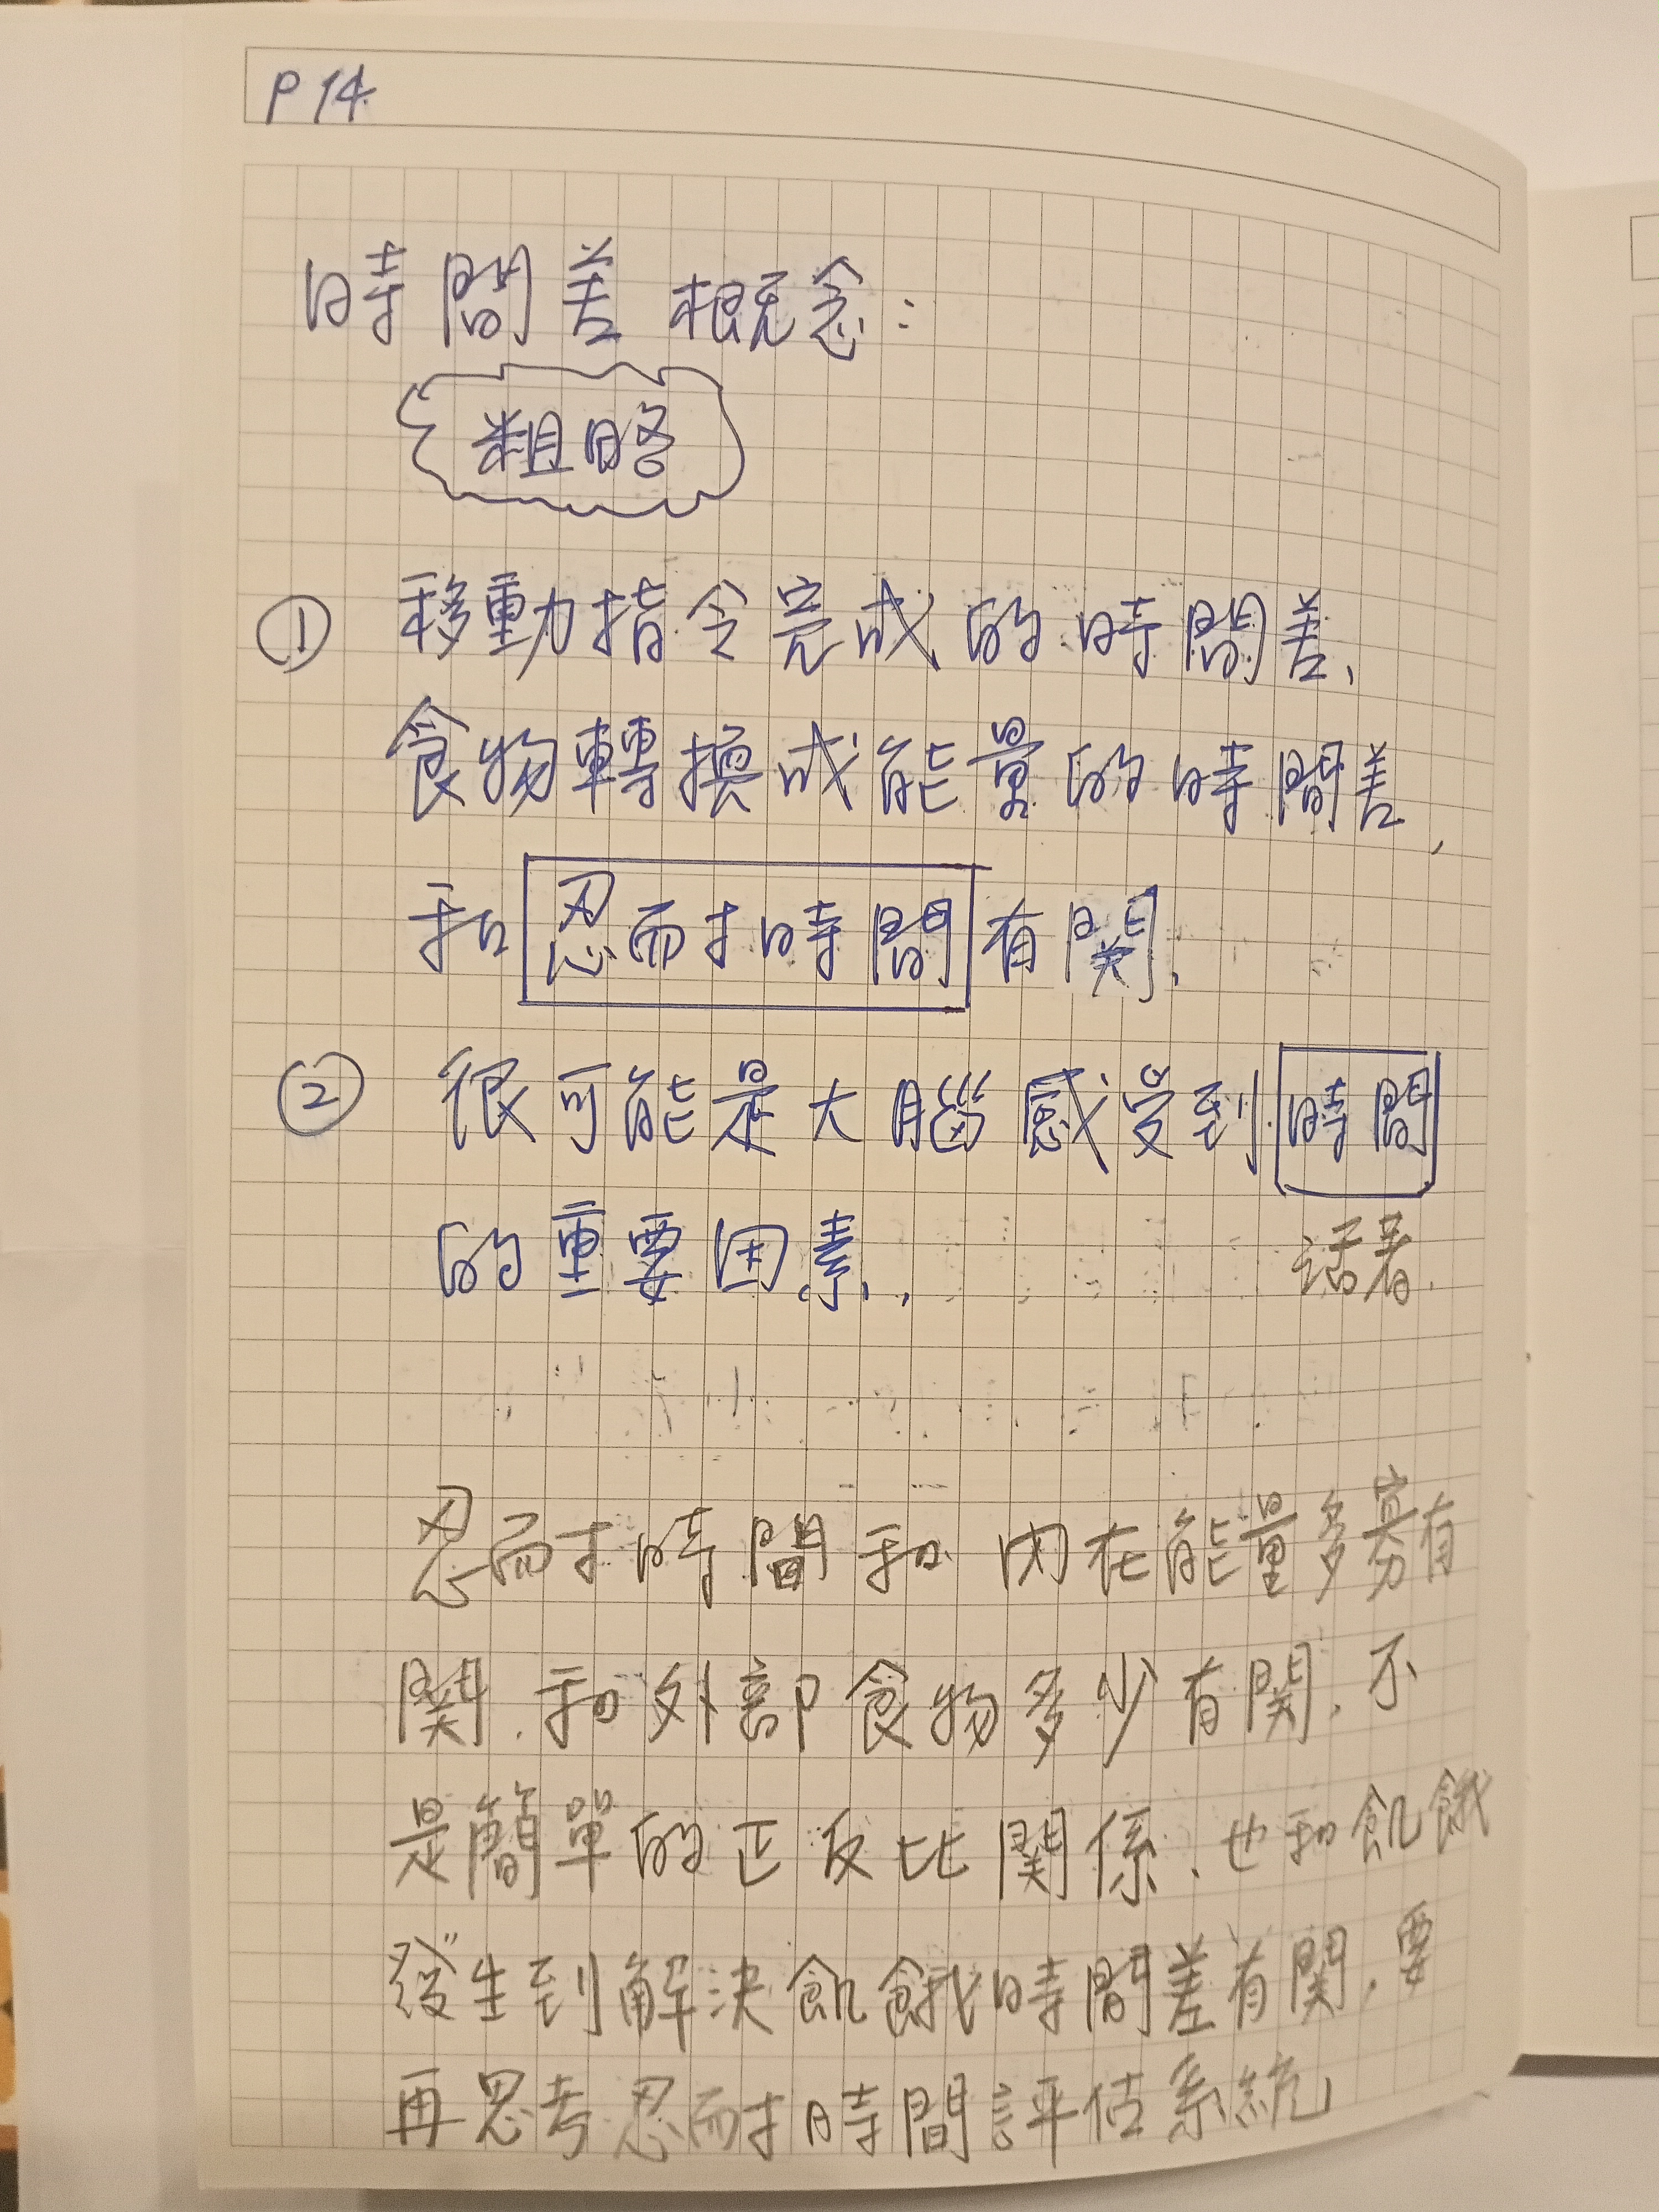 P 14
時間差 概念:
粗略
① 移動指令完成的時間差,
食物轉換成能量的時間差,
和 忍耐時間 有関,
② 很可能是大腦感受到 時間
的重要因素,
活著,
忍耐時間和 內在能量多寡有
関, 和外部食物多少有関, 不
是簡單的正反比関係, 也和飢餓
發生到解決飢餓時間差有関, 要
再思考忍耐時間評估系統